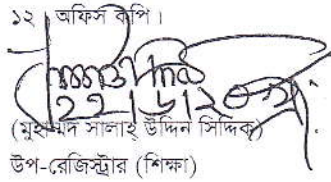 ১২। অফিস কপি।
(মুহাম্মদ সালাহ্ উদ্দিন সিদ্দিক)
উপ-রেজিস্ট্রার (শিক্ষা)